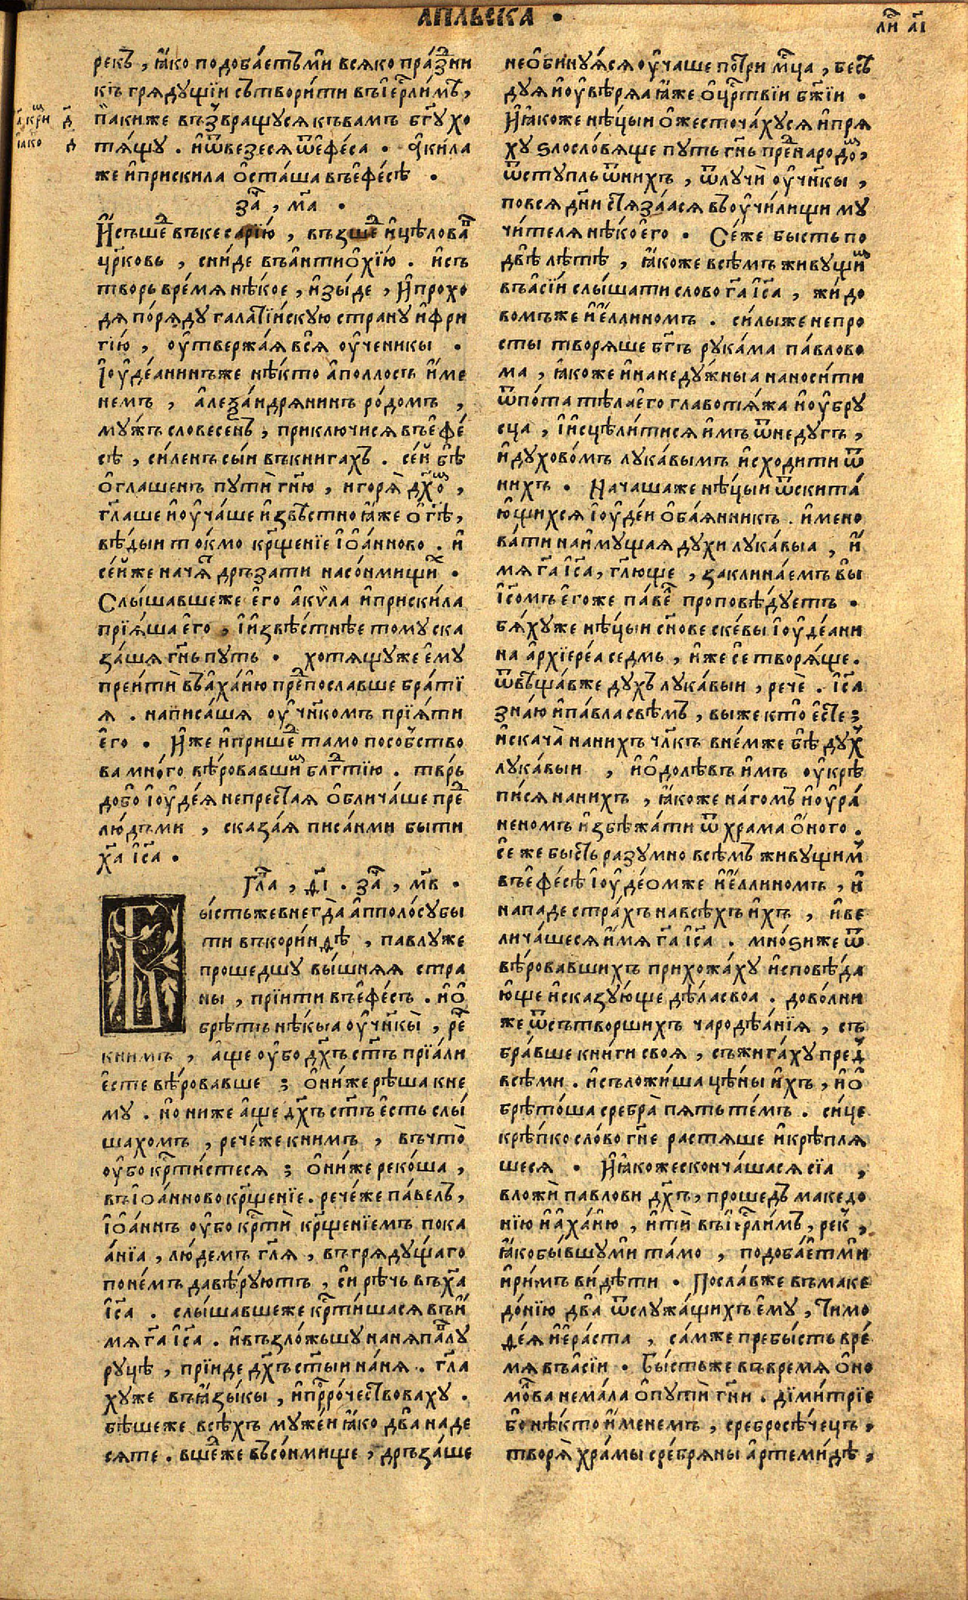 АПЛЬСКА ·
ли҃ аі
рекъ, ꙗ́ко подоба́етъ ми всяко пра́здни
къ гряду́щїи сътвори́ти въ іер҃ли́мъ,
а҃, кри д҃
па́киже възвращу́ся къ ва́мъ б҃гу хо
іа́ко д
тя́щу . и ѿвезе́ся ѿ ефе́са . а҆ки́ла
же и҆ приски́ла о҆ста́ша въ ефе́сѣ .
за҃ , м҃а .
И҆ съше́д въ кесарі́ю , възше́д и҆ цѣлова́в
цр҃ковь , сни́де въ антио҆хі́ю . и҆ съ
творь вре́мя нѣ́кое , и҆зы́де , и҆ прохо
дя по́ряду галаті́искую страну̀ и҆ фри
гі́ю , оу҆твержа́я вся̀ оу҆ченикы .
І҆оу҆де́анинъже нѣ́кто а҆поллосъ и҆ме
немъ , а҆леѯа́ндрянинъ ро́домъ ,
му́жъ слове́сенъ , приключи́ся въ ефе́
сѣ , си́ленъ сы́и въ книгахъ . се́й бѣ̀
о҆глашенъ путѝ гн҃ю , и горя̀ дх҃ом ,
гл҃аше и҆ оу҆ча́ше и҆звѣ́стно ꙗ҆́же о҆ гд҃ѣ ,
вѣ́дыи то́кмо кр҃ще́ніе і҆о҆а́нново . и҆
се́йже нача́т дръза́ти на со́нмищих .
Слы́шавшеже е҆го̀ а҆кѵ̀ла и҆ приски́ла
прія́ша е҆го̀ , и҆ и҆звѣ́стнѣе тому̀ ска
за́шя гн҃ь пу́ть . хотя́щуже е҆му̀
преитѝ въ а҆ха́ию пре́дпославше бра́ті
я . написа́шя оу҆ч҃нкомъ прія́ти
е҆го̀ . И҆́же и҆ прише́д тамо посо́бство
ва мно́го вѣ́ровавшим бл҃гтію . тврь
добо і҆оу҆де́я непреста́я о҆блича́ше пре́д
лю́дьми , сказа́я писа́нми бы́ти
х҃а і҆с҃а .
Гл҃а , д҃і . за҃ , м҃в .
Бы́стьже внегда̀ а҆пполо́су бы
ти въ кори́нѳѣ , павлу же
проше́дшу вы́шняя стра
ны , пріити въ ефе́съ . и҆ о҆
брѣ́тъ нѣ́кыа оу҆ч҃нкы̀ , ре́ч
к ни́мъ , а҆́ще оу҆́бо дх҃ъ ст҃ъ прія́ли
е҆сте вѣ́ровавше ; о҆ни́же рѣ́ша к не
му̀ . но̀ ниже а҆́ще дх҃ъ ст҃ъ е҆́сть слы́
шахомъ , рече́же к ни́мъ , въ что̀
оу҆́бо кр҃ти́стеся ; о҆ни́же реко́ша ,
въ і҆о҆а́нново кр҃щеніе . рече́же па́велъ ,
І҆о҆а́ннъ оу҆́бо кр҃тѝ кр҃ще́ніемъ пока
а́нїа , лю́демъ гл҃я , въ гряду́щаго
по не́мъ да вѣ́руютъ , си рѣ́чь въ х҃а
і҆с҃а . слы́шавшеже кр҃ти́шася въ и҆́
мя г҃а і҆с҃а . и҆ възло́жьшу на ня па́влу
ру́цѣ , пріиде дх҃ъ ст҃ы́и на ня . гл҃а
ху же въ ꙗ҆зы́кы , и҆ пр҃ро́чествоваху .
бѣ́шеже всѣ́хъ муже́и ꙗ҆́ко два̀ на де
сяте . вше́дже въ со́нмище , дръза́ше
не о҆бину́яся оу҆чаше по три мц҃а , бесѣ́
дуя и҆ оу҆вѣ́ряа ꙗ҆́же о҆ цр҃твіи бж҃іи .
И҆ ꙗ҆́коже нѣ́цыи о҆жесточа́хуся и҆ пря́
ху ѕлосло́вяще пу́ть гн҃ь пре́д наро́дом ,
ѿступль ѿ ни́хъ , ѿлучѝ оу҆ч҃нкы ,
по вся̀ дн҃и стяза́аася въ оу҆чи́лищи му
чи́теля нѣ́коего . Се́же бысть по
двѣ̀ лѣ́тѣ , ꙗ҆́коже всѣ́мъ живу́щим
въ а҆сі́и слы́шати слово г҃а і҆с҃а , жидо
во́мъже и҆ е҆́ллиномъ . си́лы же непро
сты творя́ше бг҃ъ рука́ма па́влово
ма , ꙗ҆́коже и҆ на неду́жныа наноси́ти
ѿ по́та тѣ́ла его̀ главотя́жа и҆ оу҆бру
сца , и҆ и҆сцѣли́тися и҆́мъ ѿ неду́гъ ,
и҆ духово́мъ лука́вымъ и҆сходи́ти ѿ
ни́хъ . Нача́шаже нѣ́цыи ѿ скита́
ю҆щихся і҆оу҆де́и о҆бая́нникъ . и҆мено
ва́ти на и҆му́щая ду́хи лука́выа , и҆́
мя г҃а і҆с҃а , гл҃юще , заклина́емъ вы̀
і҆с҃омъ е҆гоже па́вел проповѣ́дуетъ .
бя́ху же нѣ́цыи сн҃ове ске́вы і҆оу҆де́ани
на а҆рхіере́а се́дмь , и҆же сѐ творя́ще .
ѿвѣща́вже ду́хъ лука́выи , речѐ . і҆с҃а
зна́ю и҆ па́вла свѣ́мъ , вы́ же кто̀ е҆стѐ ;
и҆ скача̀ на ни́хъ чл҃къ в не́мже бѣ̀ ду́х
лука́выи , и҆ о҆долѣ́въ и҆́мъ оу҆крѣ
пи́ся на ни́хъ , ꙗ҆́коже на́гомъ и҆ оу҆ра́
неномъ и҆збѣжа́ти ѿ храма о҆́ного .
се́ же бы́сть разу́мно всѣ́мъ живущим
въ е҆фе́сѣ і҆оу҆де́омже и҆ е҆́ллиномъ , и҆
нападе стра́хъ на всѣ́хъ и҆́хъ , и҆ ве
лича́шеся и҆́мя г҃а і҆с҃а . мно́ѕиже ѿ
вѣ́ровавшихъ прихожа́ху и҆сповѣ́да
ю҆ще и҆ сказу́юще дѣ́ла своа . дово́лни
же ѿ сътво́рших чародѣ́анія , съ
бра́вше кни́ги своя , съжига́ху пре́д
всѣ́ми . и҆ съложи́ша цѣ́ны и҆́хъ , и҆ о҆
брѣто́ша сребра̀ пя́ть те́мъ . си́це
крѣ́пко сло́во гн҃е растя́ше и҆ крѣпля
шеся . И҆ ꙗ҆́коже сконча́шася сїа ,
вложѝ па́влови дх҃ъ , проше́дъ македо
ні́ю и҆ а҆ха́ию , и҆тѝ въ і҆ер҃ли́мъ , рек ,
ꙗ҆́ко бы́вшу ми та́мо , подоба́ет ми
и҆ ри́мъ ви́дѣти . Посла́вже въ маке
до́нїю два̀ ѿ служа́щихъ е҆му̀ , Тимо
ѳе́я и҆ е҆ра́ста , са́мже пребы́сть вре́
мя въ а҆сі́и . Бы́стьже въ вре́мя о҆но
молва нема́ла о҆ пути гн҃и . ди́ми́тріе
бо нѣ́кто и҆́менемъ , сребросѣ́чецъ ,
творя̀ хра́мы сре́бряны а҆ртеми́дѣ ,